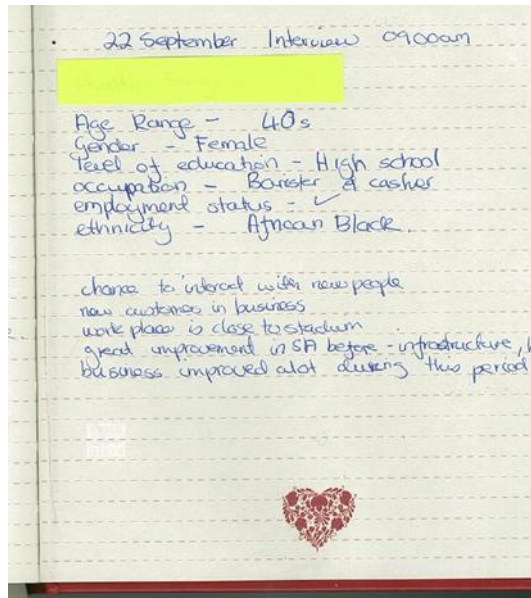 22 September Interview 0900am
Age Range - 40s
Gender - Female
level of education - High school
occupation - Barister & casher
employment status - ✓
ethnicity - African Black.
chance to interact with new people
new customers in business
work place is close to stadium
great improvement in SA before - infrastructure,
business improved alot during this period